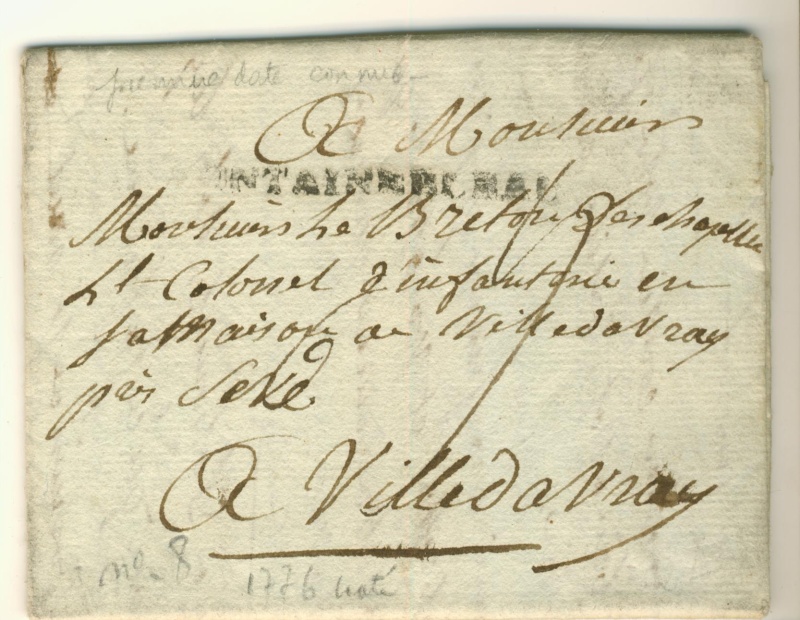 première date connue
A Monsieur
NTAINEBLEAU
Monsieur Le Breton Deschapelles
Lt Colonel d'infanterie en
sa Maison de Villedavray
près Seve
A Villedavray
no. 8
1776 noté